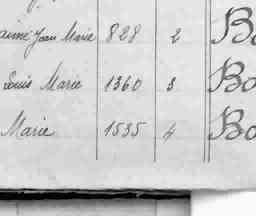 aimé Jean Marie 828 2 Bo
Louis Marie 1360 3 Bo
Marie 1535 4 Bo